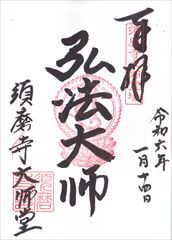 奉拝
令和六年
一月十四日
弘法大師
須磨寺大師堂